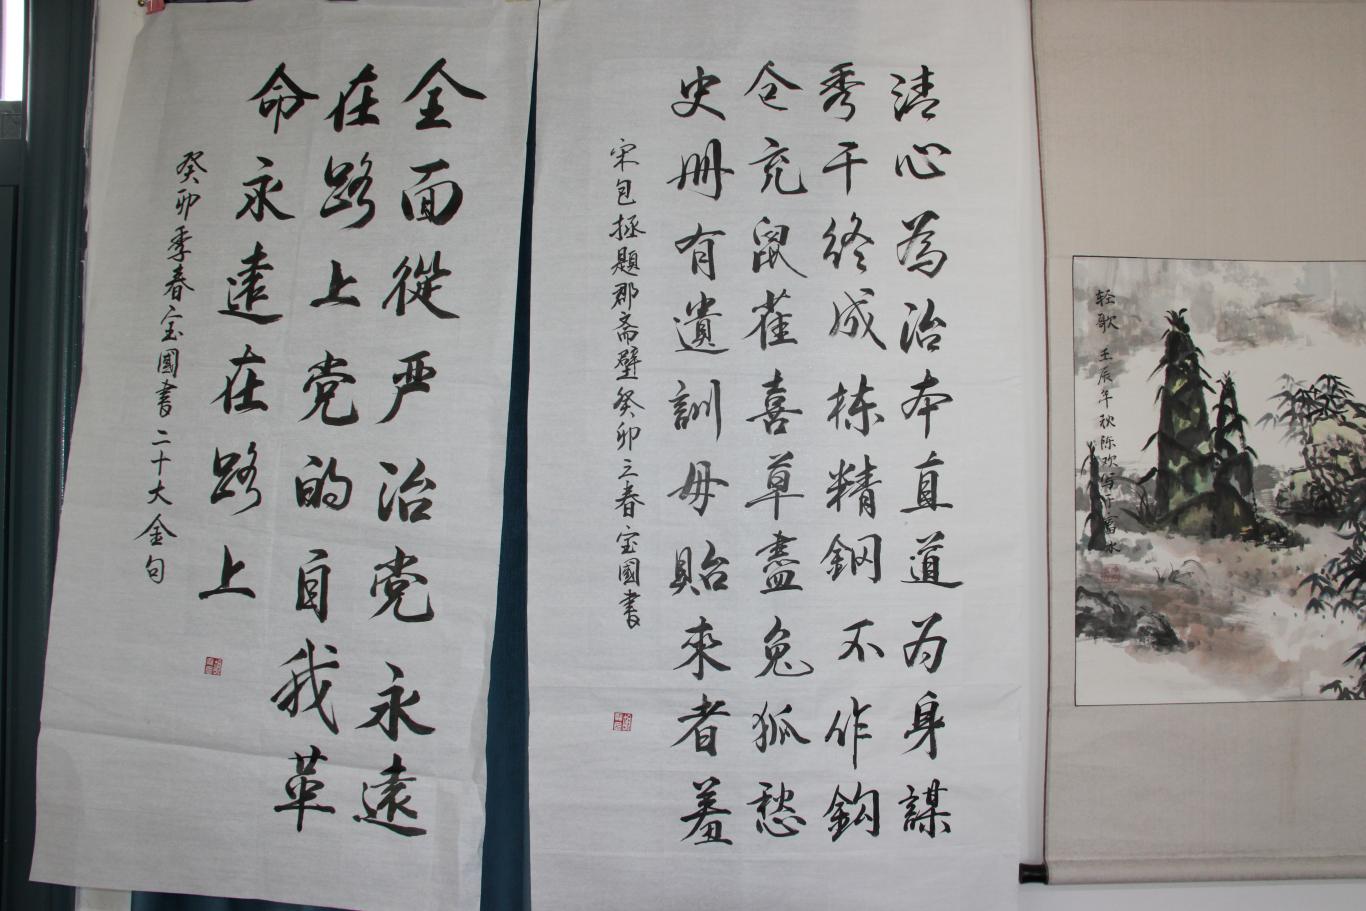 清心為治本直道為身謀
秀干终成栋精鋼不作鈎
仓充鼠雀喜草盡兔狐愁
史册有遺訓毋貽来者羞
宋包拯題郡斋壁癸卯三春宝國書
全面從严治党永遠
在路上党的自我革
命永遠在路上
癸卯季春宝國書二十大金句
轻歌
壬辰年秋陈欢写于富水